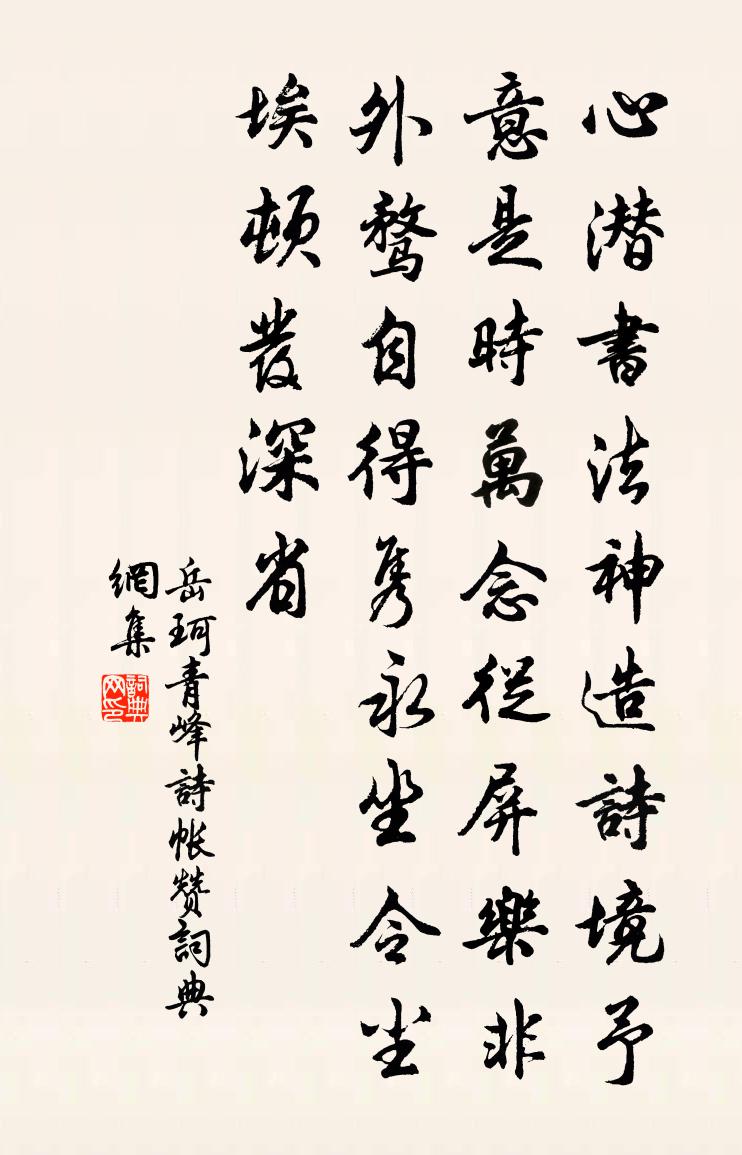 心潜書法神造詩境予
意是時萬念從屏樂非
外鶩自得隽永坐令尘
埃頓發深省
岳珂青峰詩帐赞詞典
網集
詞典网印